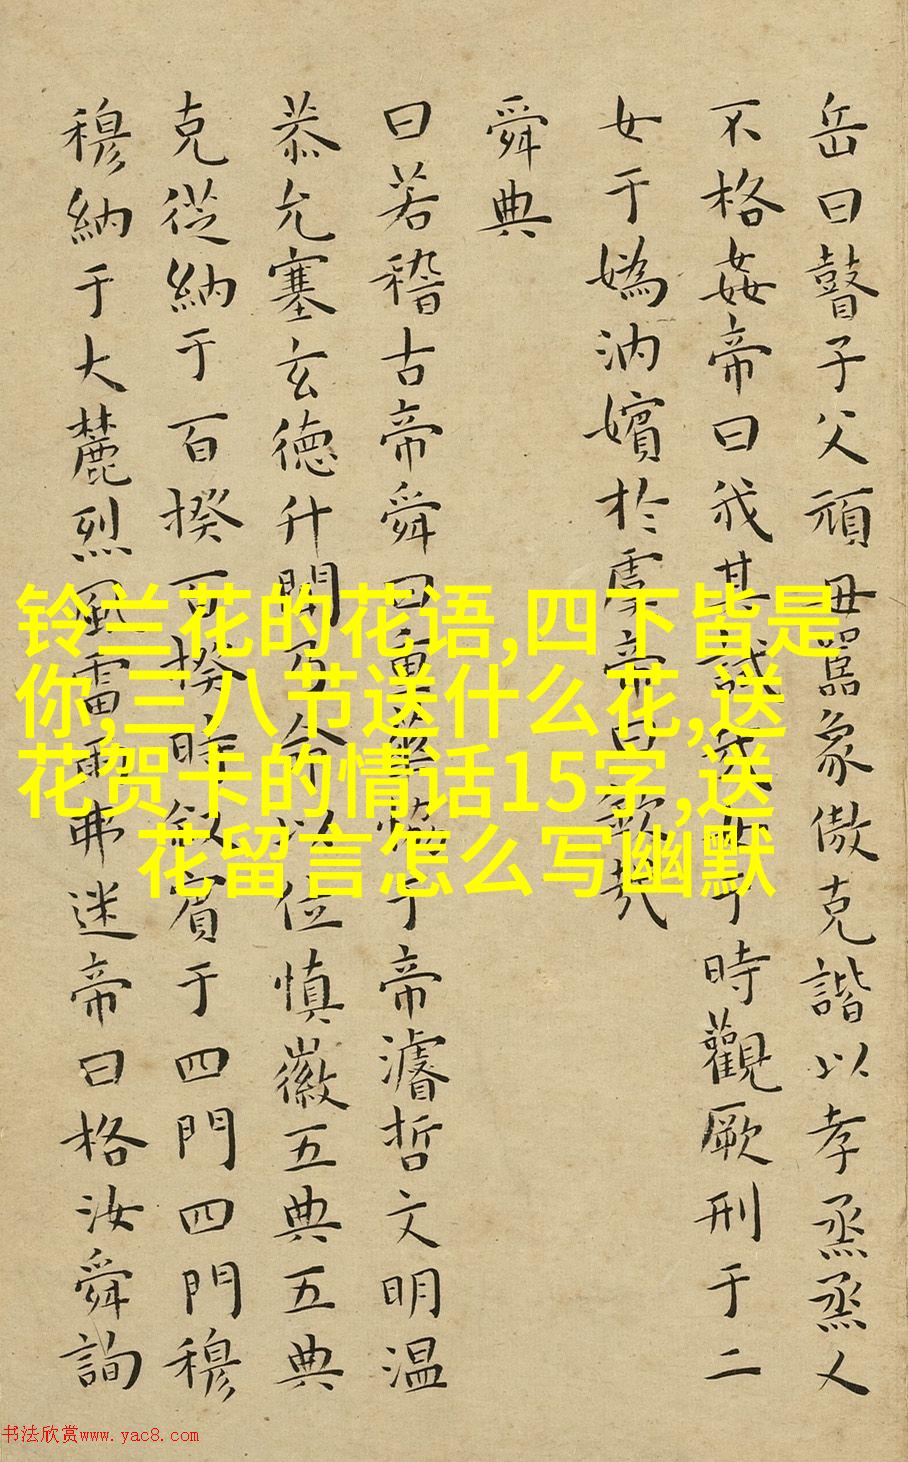 岳曰瞽子父頑毋嚚象傲克諧以孝烝烝乂
不格姦帝曰我其試哉女于時觀厥刑于二
女于媯汭嬪於虞帝曰欽哉
舜典
曰若稽古帝舜曰重華協于帝濬哲文明温
恭允塞玄德升聞乃命以位慎徽五典五典
克從納于百揆百揆時敘賓于四門四門穆
穆納于大麓烈風雷雨弗迷帝曰格汝舜詢
铃兰花的花语,四下皆是
你,三八节送什么花,送
花贺卡的情话15字,送
花留言怎么写幽默
书法欣赏www.yac8.com